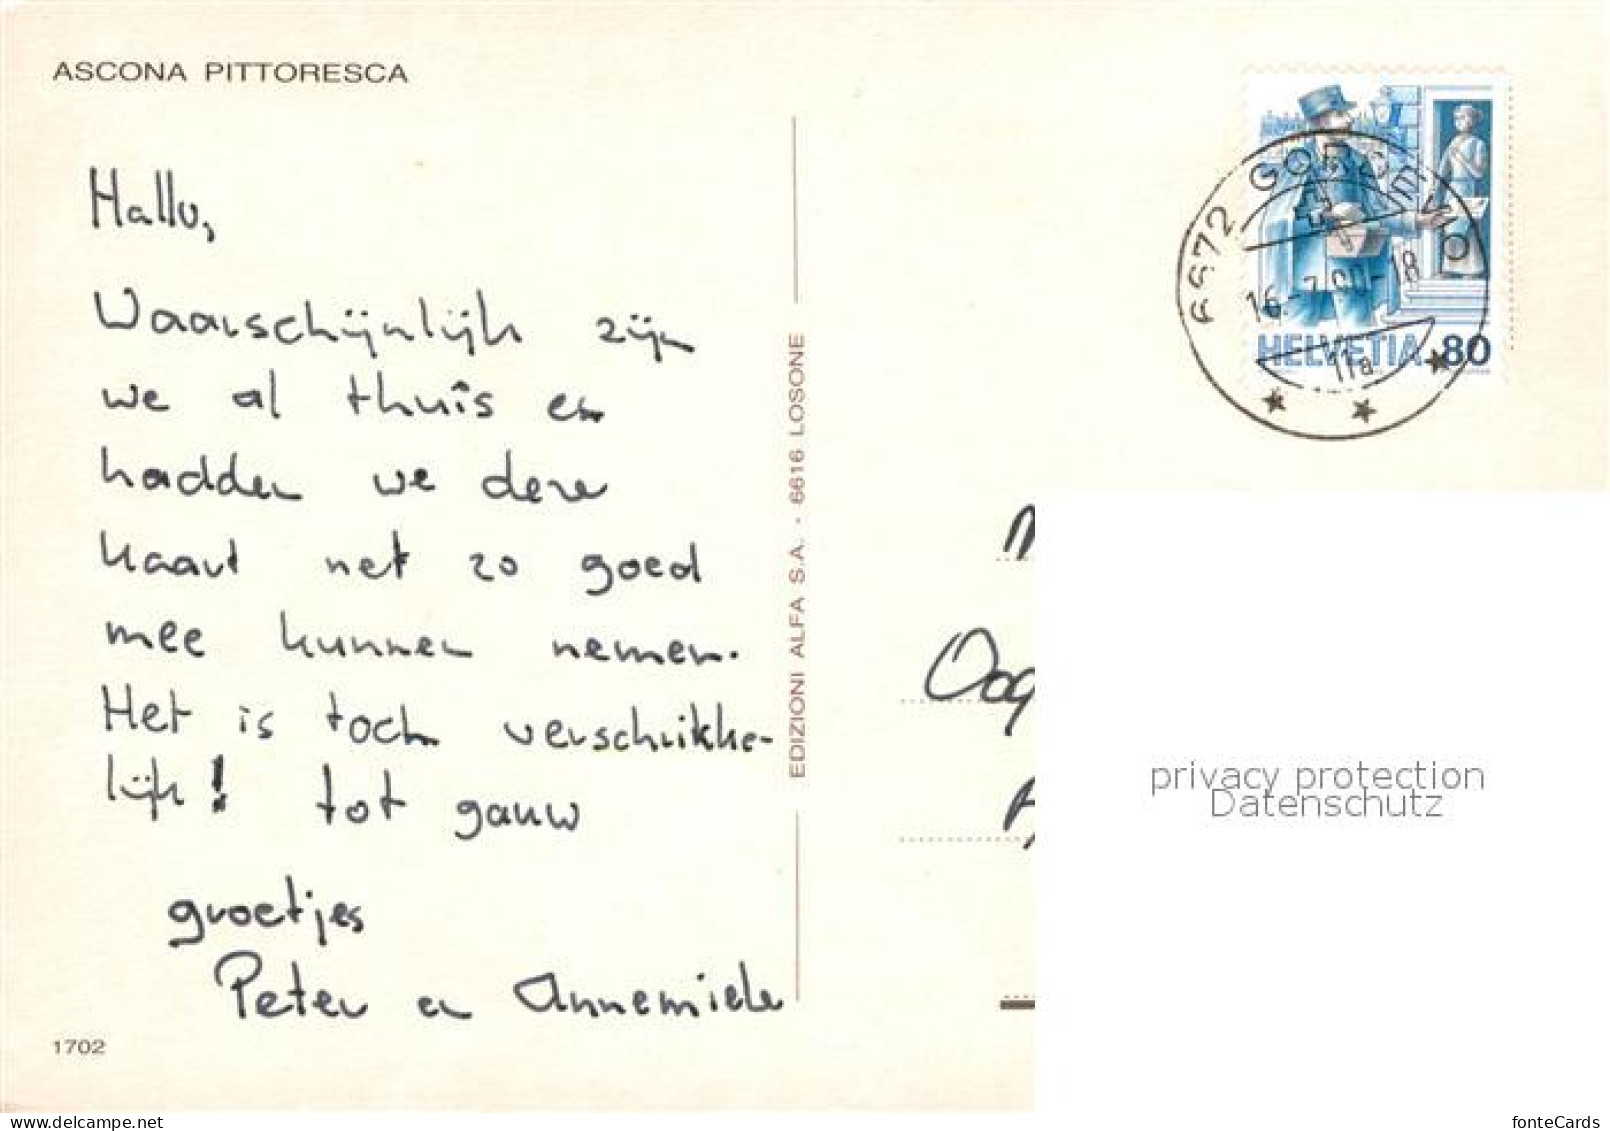 ASCONA PITTORESCA
Hallo,
Waarschijnlijk zijn
we al thuis en
hadden we deze
kaart net zo goed
mee kunnen nemen.
Het is toch verschrikke-
lijk! tot gauw
groetjes
Peter en Annemieke
1702
EDIZIONI ALFA S.A. - 6616 LOSONE
6672 GORDEVIO
16.-7.90-18
11a
HELVETIA 80
privacy protection
Datenschutz
www.delcampe.net
fonteCards